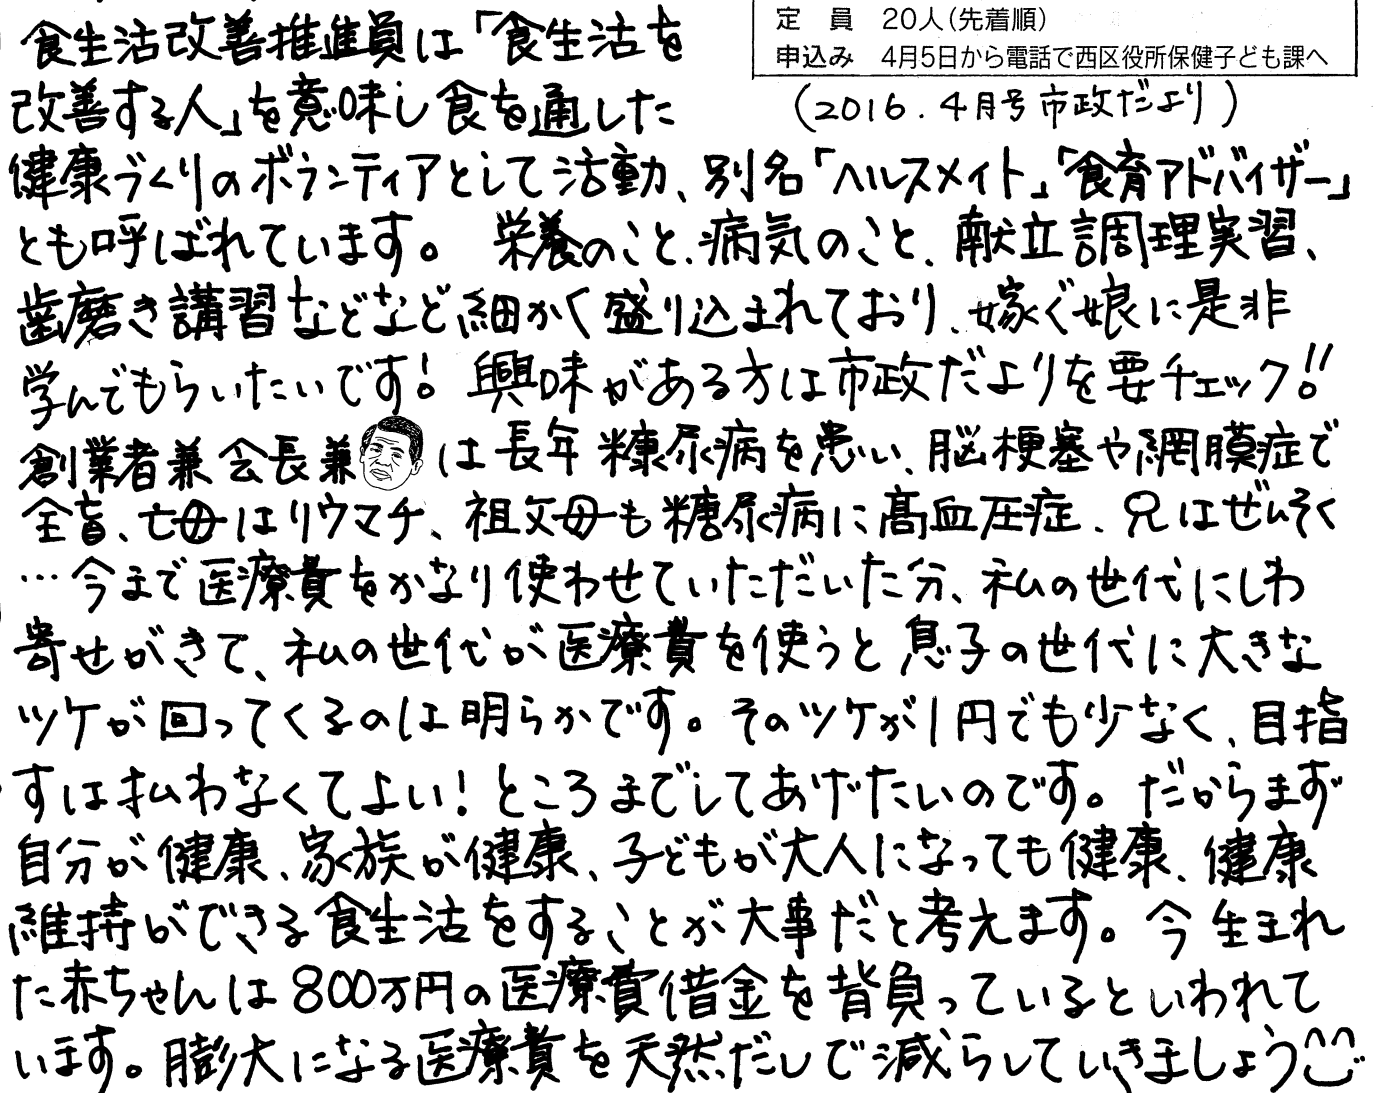 定員 20人(先着順)
申込み 4月5日から電話で西区役所保健子ども課へ
(2016.4月号市政だより)
食生活改善推進員は「食生活を
改善する人」を意味し食を通した
健康づくりのボランティアとして活動、別名「ヘルスメイト」「食育アドバイザー」
とも呼ばれています。 栄養のこと、病気のこと、献立調理実習、
歯磨き講習などなど細かく盛り込まれており、嫁ぐ娘に是非
学んでもらいたいです! 興味がある方は市政だよりを要チェック!!
創業者兼会長兼は長年糖尿病を患い、脳梗塞や網膜症で
全盲、亡母はリウマチ、祖父母も糖尿病に高血圧症、兄はぜんそく
…今まで医療費をかなり使わせていただいた分、私の世代にしわ
寄せがきて、私の世代が医療費を使うと息子の世代に大きな
ツケが回ってくるのは明らかです。そのツケが1円でも少なく、目指
すは払わなくてよい!ところまでしてあげたいのです。だからまず
自分が健康、家族が健康、子どもが大人になっても健康、健康
維持ができる食生活をすることが大事だと考えます。今生まれ
た赤ちゃんは800万円の医療費借金を背負っているといわれて
います。膨大になる医療費を天然だしで減らしていきましょう